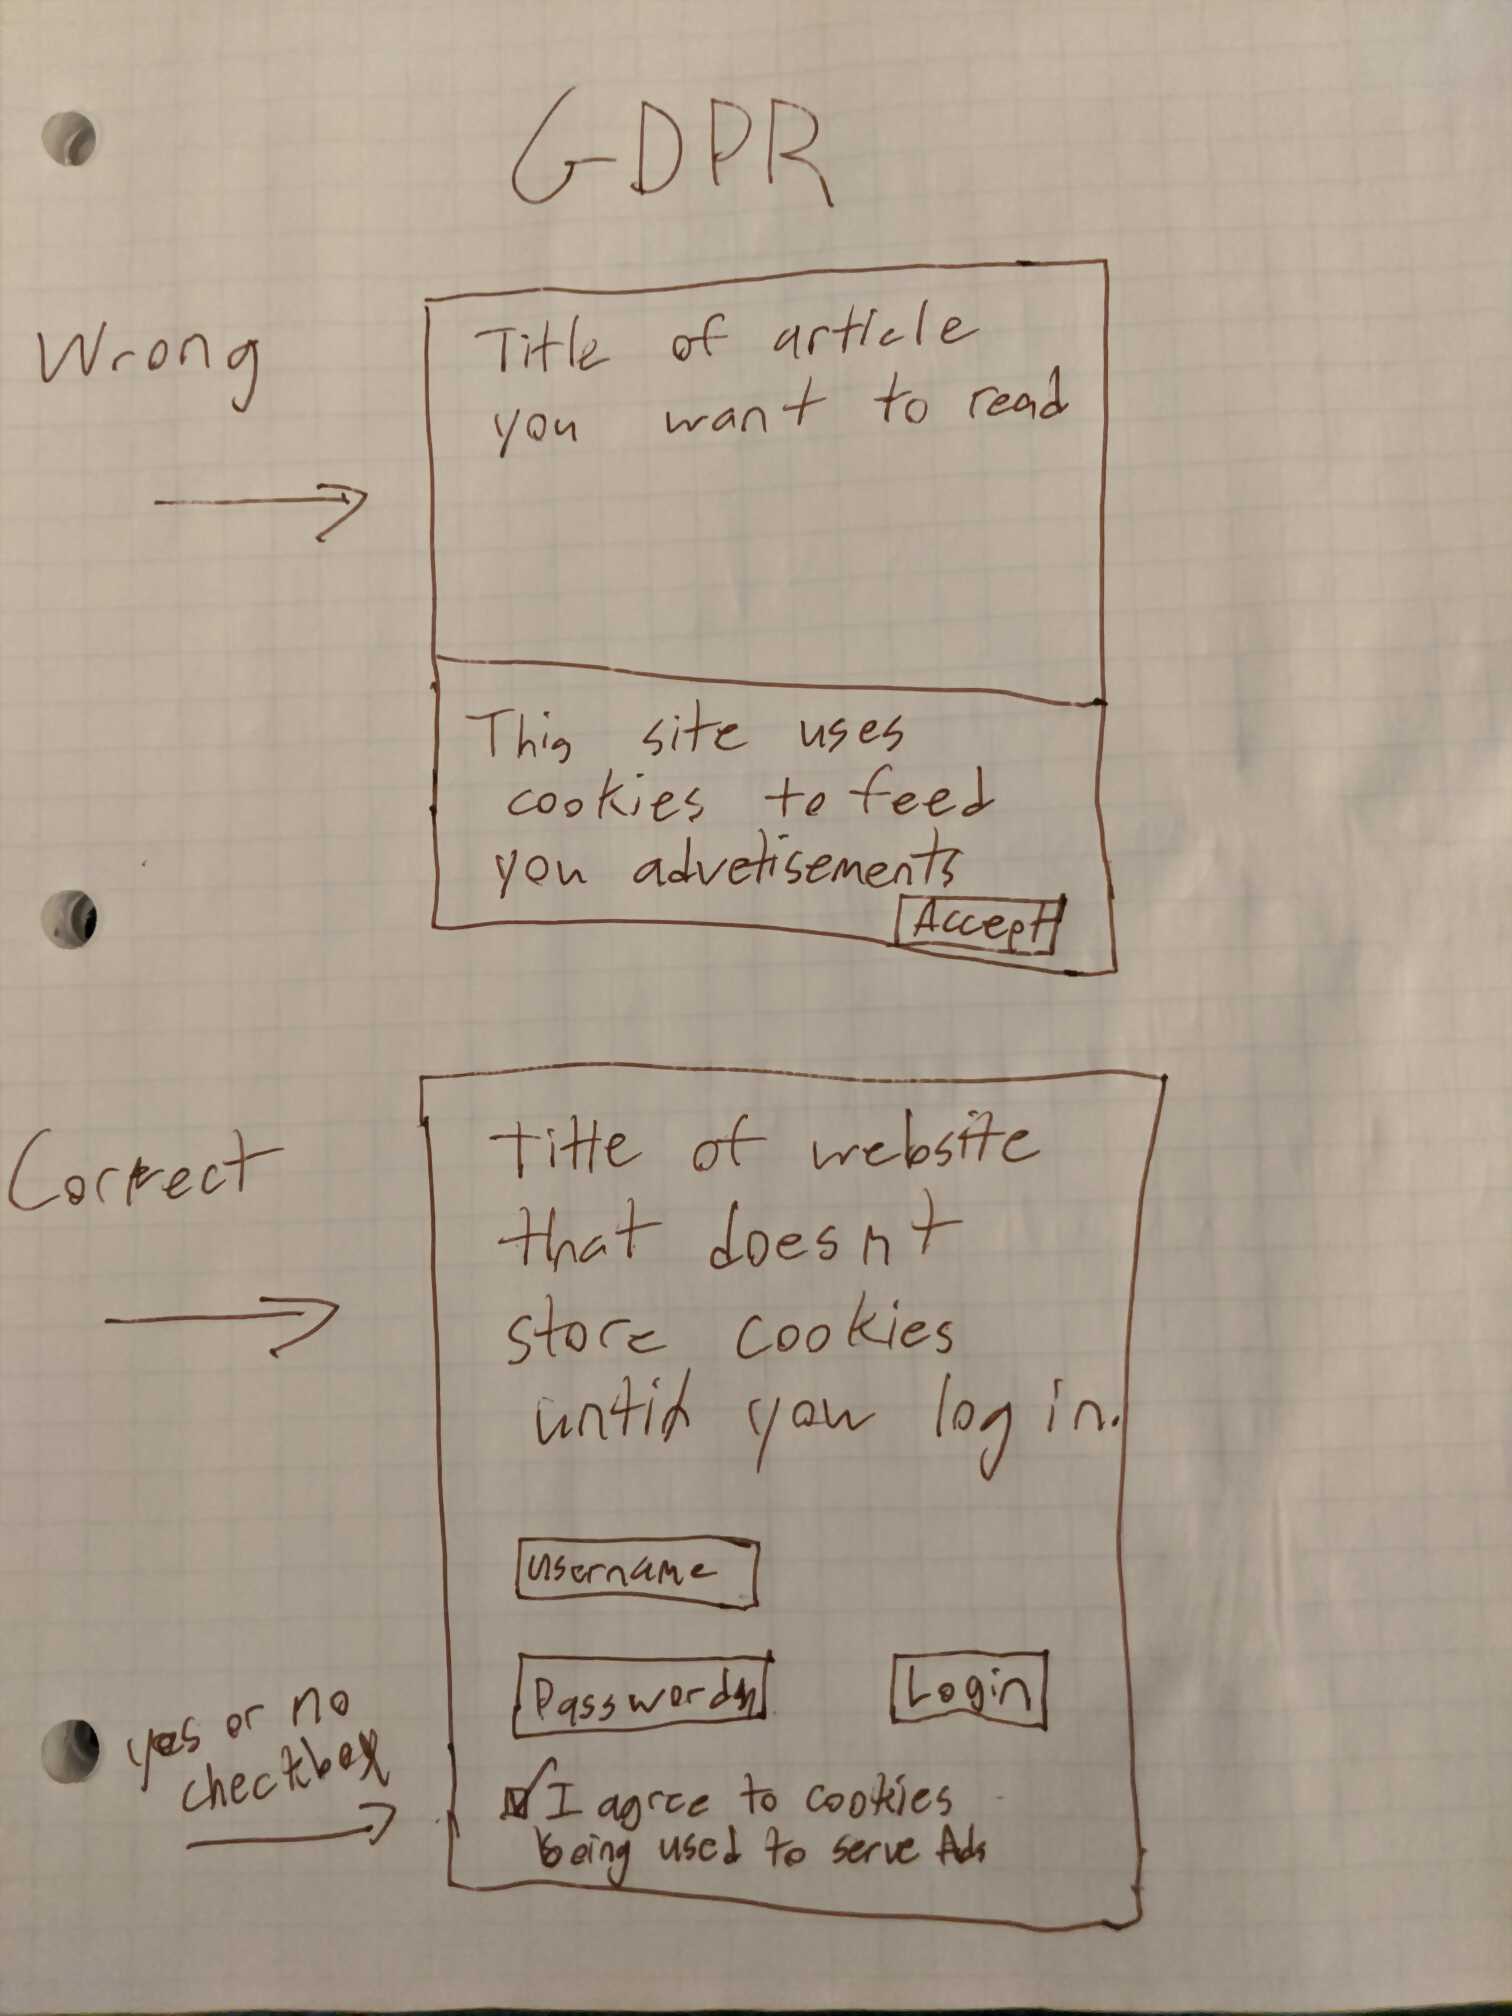 GDPR
Wrong
Title of article
you want to read
This site uses
cookies to feed
you advetisements
Accept
Correct
Title of website
that doesnt
store cookies
until you log in.
Username
Password
Login
yes or no
checkbox
I agree to cookies
being used to serve Ads